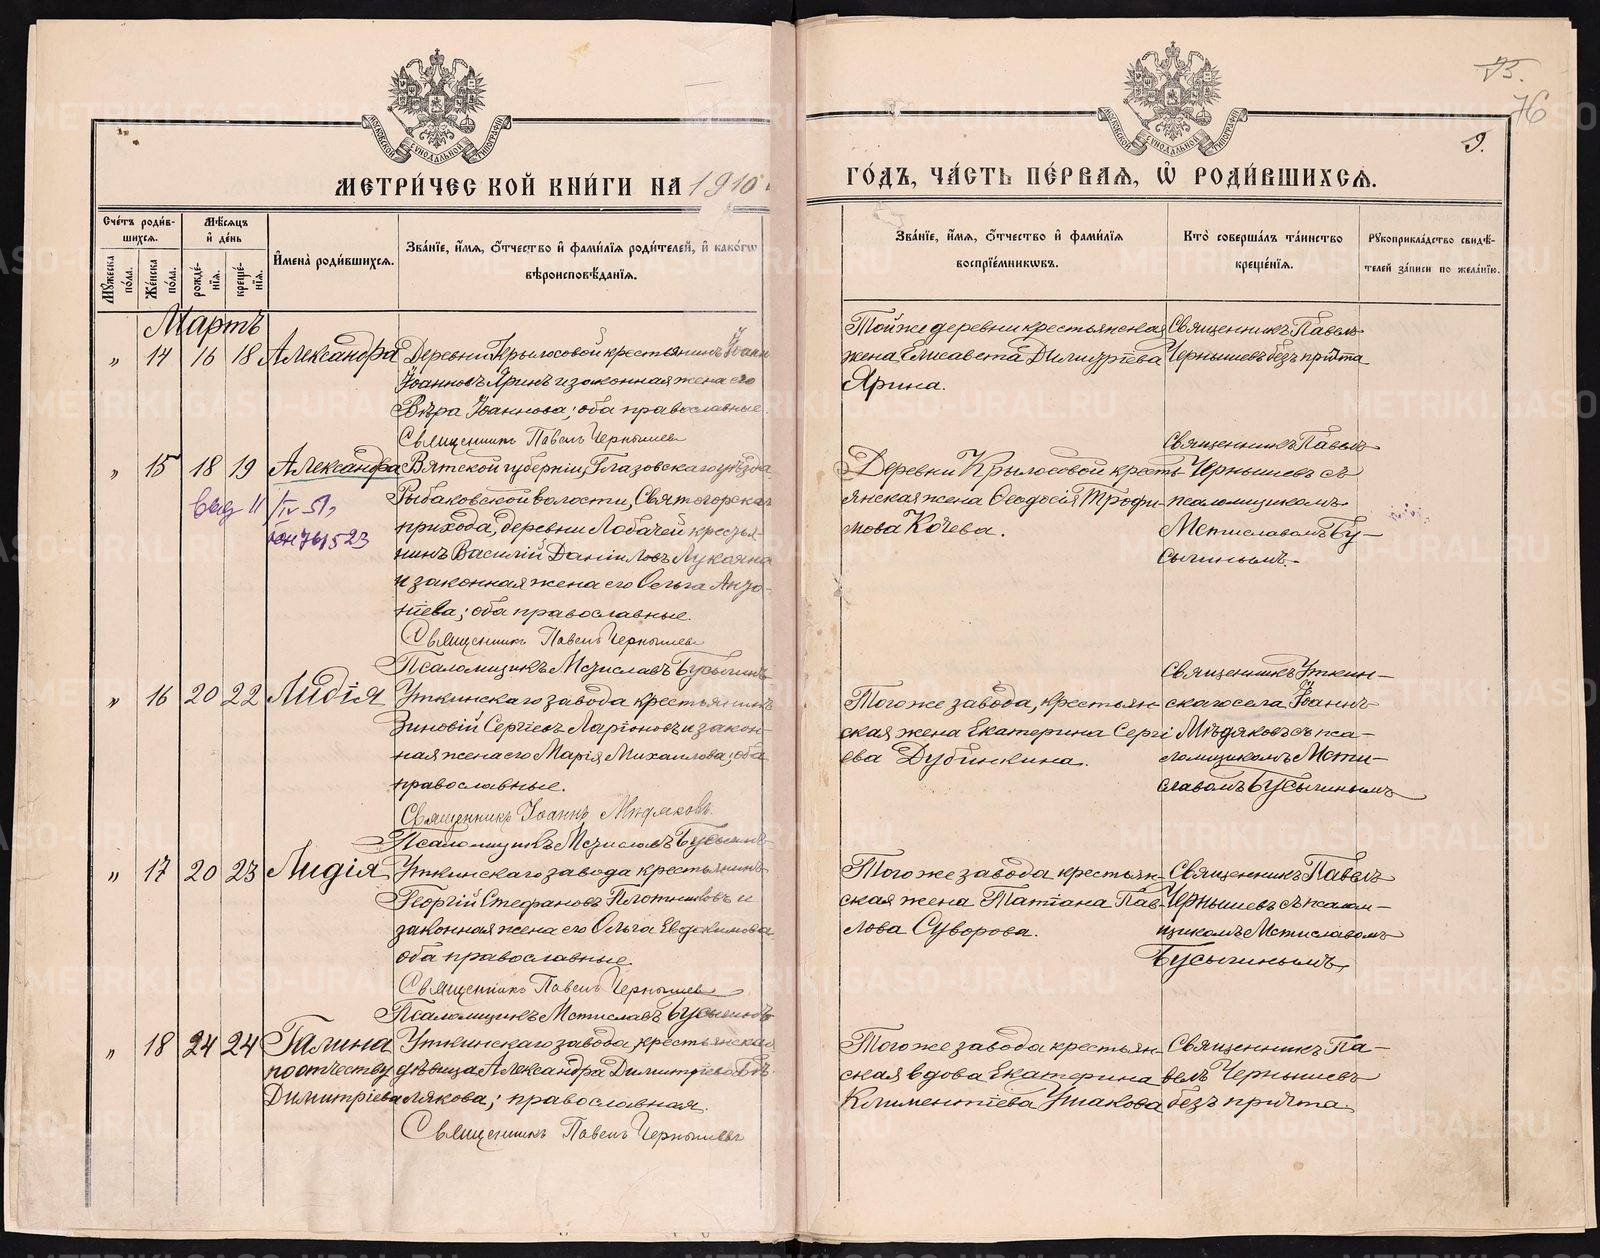 75.
76
9.
МОСКОВСКОЙ СѴНОДАЛЬНОЙ ТИПОГРАФІИ
МОСКОВСКОЙ СѴНОДАЛЬНОЙ ТИПОГРАФІИ
МЕТРИ́ЧЕСКОЙ КНИ́ГИ НА 1910
ГО́ДЪ, ЧА́СТЬ ПЕ́РВАѦ, Ѡ҆ РОДИ́ВШИХСѦ.
Сче́тъ роди́в-
шихсѧ.
Мѣ́сѧцъ
и҆ де́нь
Мꙋ́жеска по́ла.
Же́нска по́ла.
рожде́-
нїѧ.
креще́-
нїѧ.
И҆мена̀ роди́вшихсѧ.
Зва́нїе, и҆́мѧ, ѻ҆́тчество и҆ фами́лїѧ роди́телей, и҆ како́гѡ
вѣроисповѣ́данїѧ.
Зва́нїе, и҆́мѧ, ѻ҆́тчество и҆ фами́лїѧ
воспрїе́мникѡвъ.
Кто̀ соверша́лъ та́инство
креще́нїѧ.
Рꙋкоприкла́дство свидѣ́-
телей за́писи по жела́нїю.
Мартъ
" 14 16 18 Александра
Деревни Крылосовой крестьянинъ Іоаннъ
Іоанновъ Яринъ и законная жена его
Вѣра Іоаннова; оба православные.
Священникъ Павелъ Чернышевъ
Той же деревни крестьянская
жена Елисавета Димитріева
Ярина.
Священникъ Павелъ
Чернышевъ безъ причта
" 15 18 19 Александра
II/IV-51
761523
Вятской губерніи, Глазовскаго уѣзда
Рыбаковской волости, Святогорскаго
прихода, деревни Лобачей крестья-
нинъ Василій Даніиловъ Лукоянов
и законная жена его Ольга Анто-
ніева; оба православные.
Священникъ Павелъ Чернышевъ
Псаломщикъ Мстиславъ Бусыгинъ
Деревни Крылосовой кресть-
янская жена Ѳеодосія Трофи-
мова Кочева.
Священникъ Павелъ
Чернышевъ съ
псаломщикомъ
Мстиславомъ Бу-
сыгинымъ.
" 16 20 22 Лидія
Уткинскаго завода крестьянинъ
Зиновій Сергіевъ Ларіоновъ и закон-
ная жена его Марія Михаилова; оба
православные.
Священникъ Іоаннъ Мѣдяковъ.
Псаломщикъ Мстиславъ Бусыгинъ
Того же завода, крестьян-
ская жена Екатерина Сергі-
ева Дубинкина.
Священникъ Уткин-
скаго села Іоаннъ
Мѣдяковъ съ пса-
ломщикомъ Мсти-
славомъ Бусыгинымъ
" 17 20 23 Лидія
Уткинскаго завода крестьянинъ
Георгій Стефановъ Плотниковъ и
законная жена его Ольга Евдокимова
оба православные.
Священникъ Павелъ Чернышевъ
Псаломщикъ Мстиславъ Бусыгинъ
Того же завода крестьян-
ская жена Татіана Пав-
лова Суворова.
Священникъ Павелъ
Чернышевъ съ псалом-
щикомъ Мстиславомъ
Бусыгинымъ
" 18 24 24 Галина
по отчеству
Димитріева
Уткинскаго завода, крестьянская
дѣвица Александра Димитріева Бѣ-
лякова; православная.
Священникъ Павелъ Чернышевъ
Того же завода крестьян-
ская вдова Екатерина
Климентіева Ушакова
Священникъ Па-
велъ Чернышевъ
безъ причта
METRIKI.GASO-URAL.RU